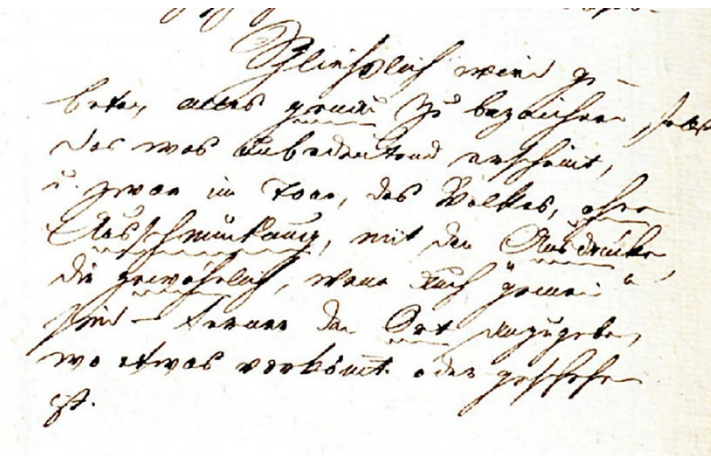 Schließlich wird ge-
beten alles genau zu bezeichnen, selbst
das was unbedeutend erscheint,
u. zwar im Tone, des Volkes, ohne
Ausschmückung, mit den Ausdrücken,
die gewöhnlich, wenn auch gemein
sind – ferner den Ort anzugeben,
wo etwas vorkömt oder geschehen
ist.